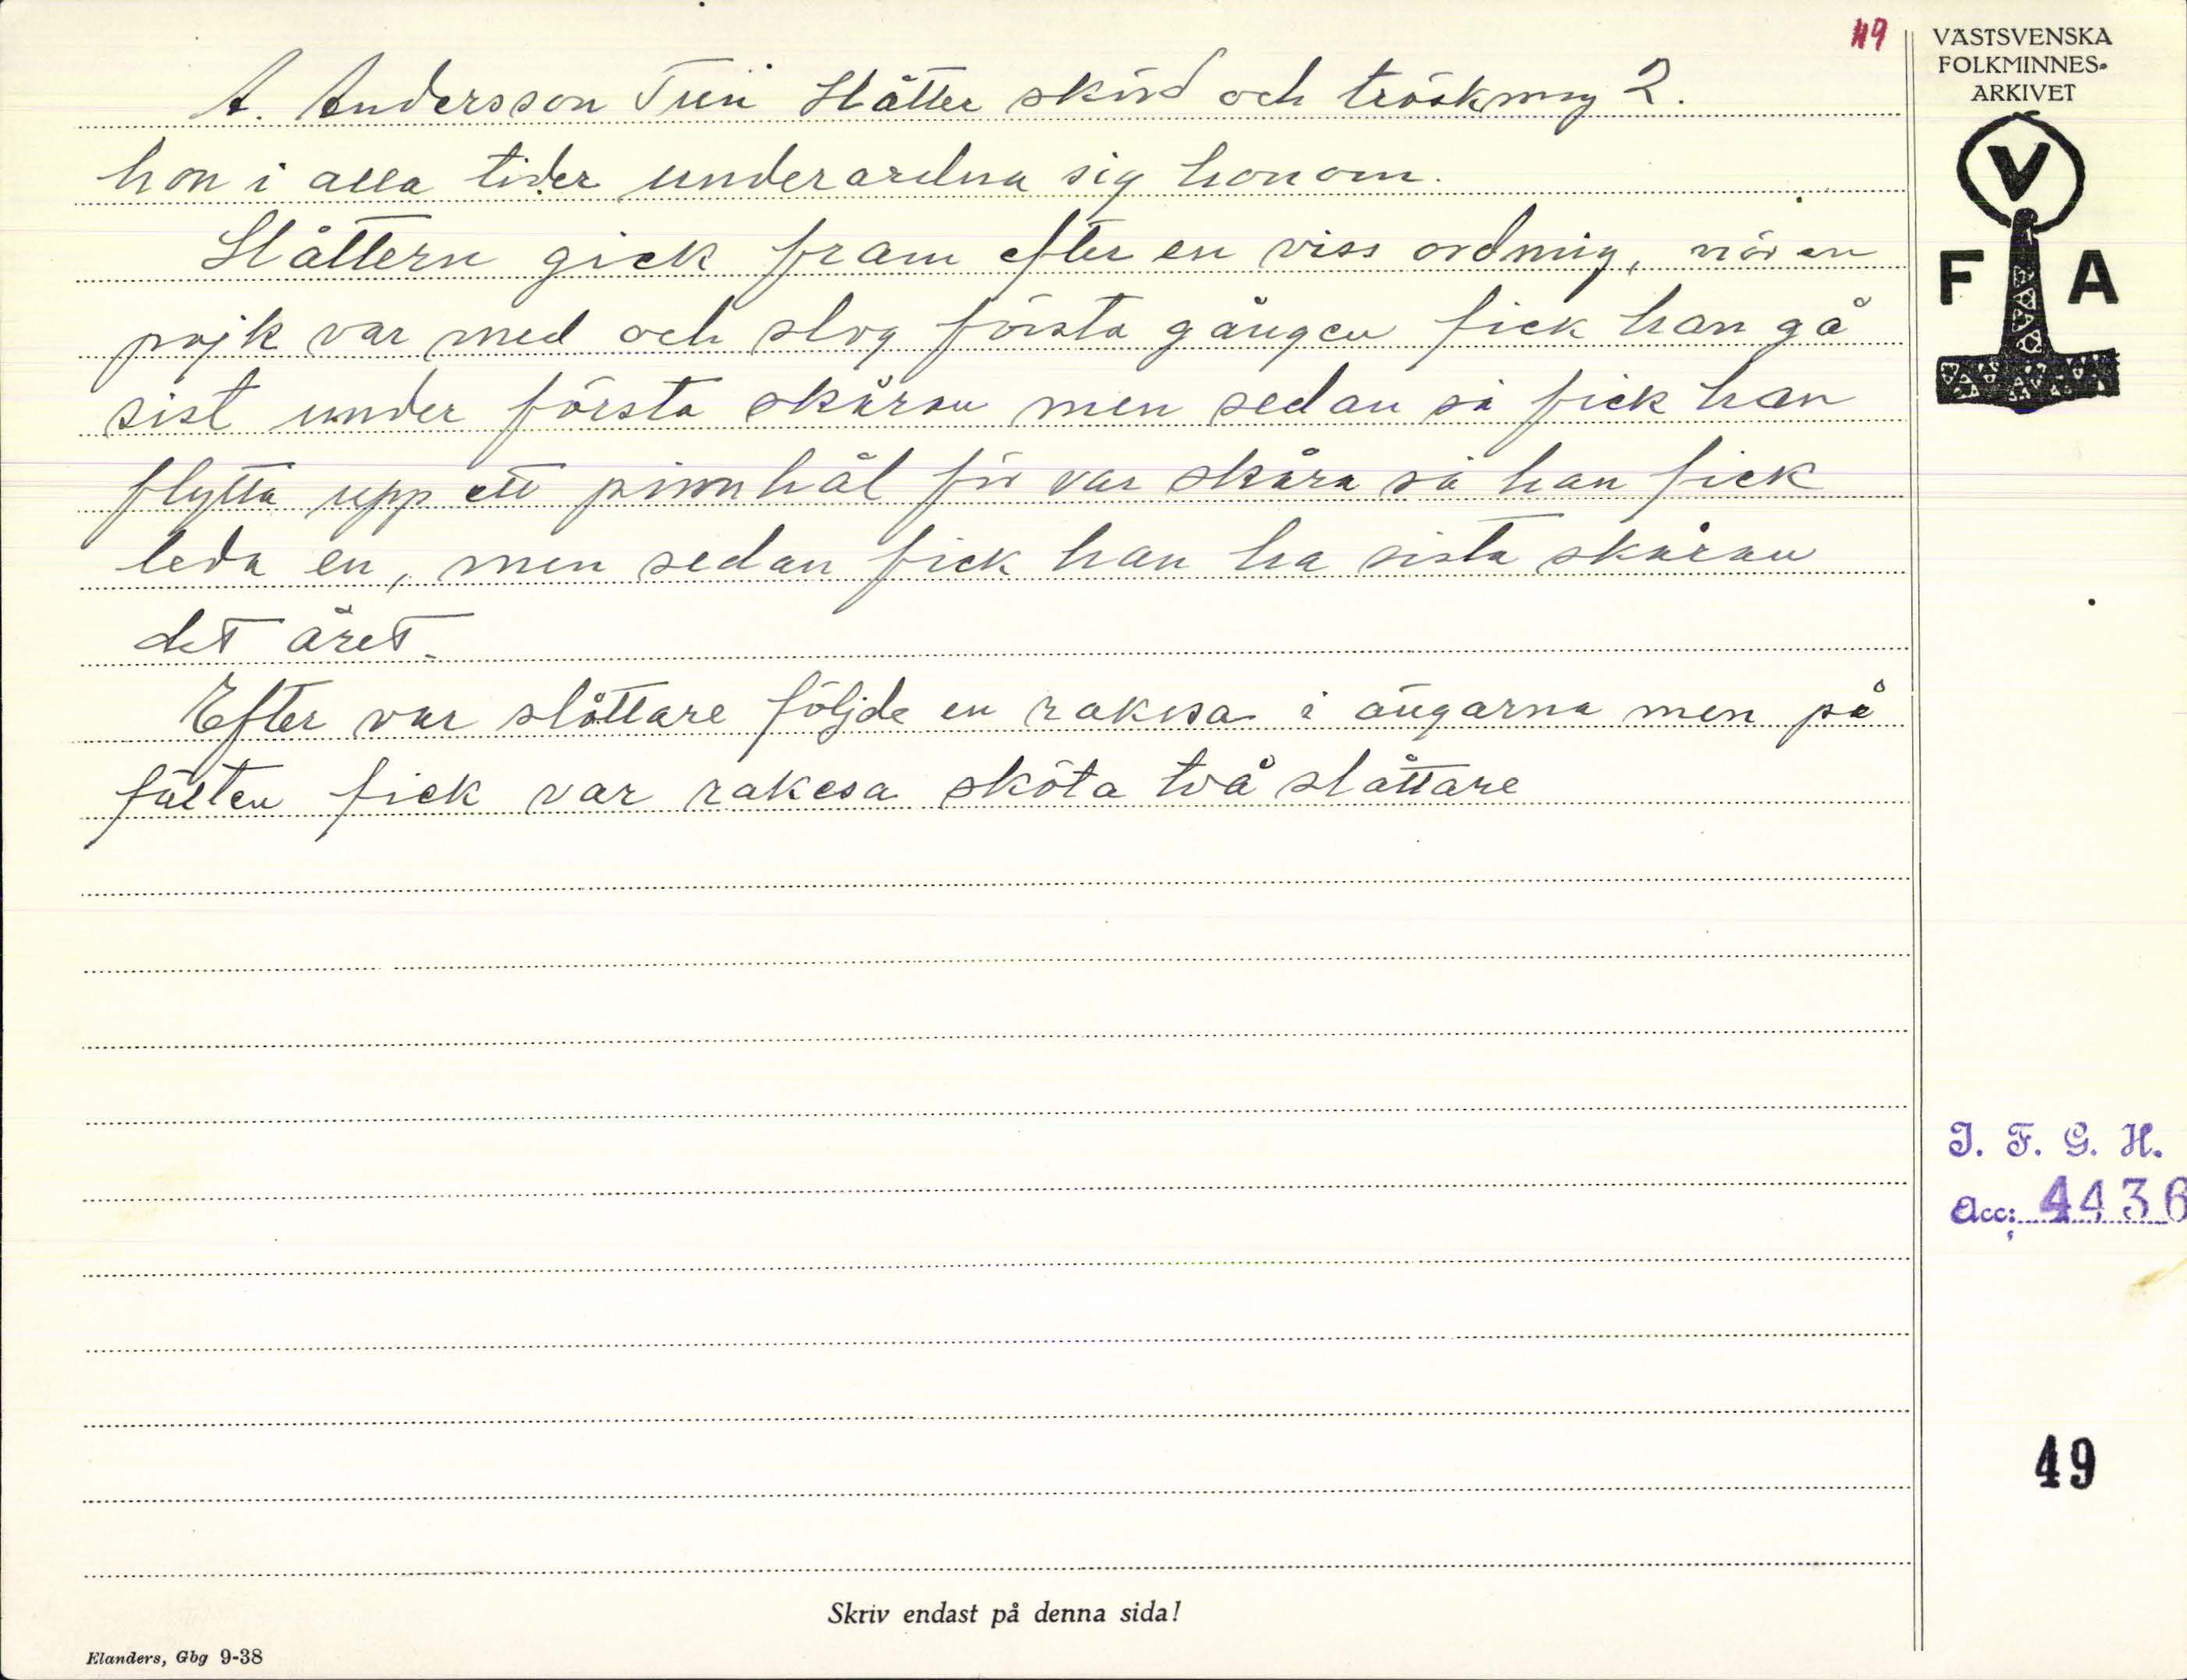 49
A. Andersson Tun Slåtter skörd och tröskning 2.
hon i alla tider underordna sig honom.
Slåttern gick fram efter en viss ordning, när en
pojk var med och slog första gången fick han gå
sist under första skåran men sedan så fick han
flytta upp ett pinnhål för var skåra så han fick
leda en, men sedan fick han ha sista skåran
det året.
Efter var slåttare följde en rakesa i ängarna men på
fälten fick var rakesa sköta två slåttare
Skriv endast på denna sida!
Elanders, Gbg 9-38
VÄSTSVENSKA
FOLKMINNES-
ARKIVET
V
F A
I. F. G. H.
Acc: 4436
49